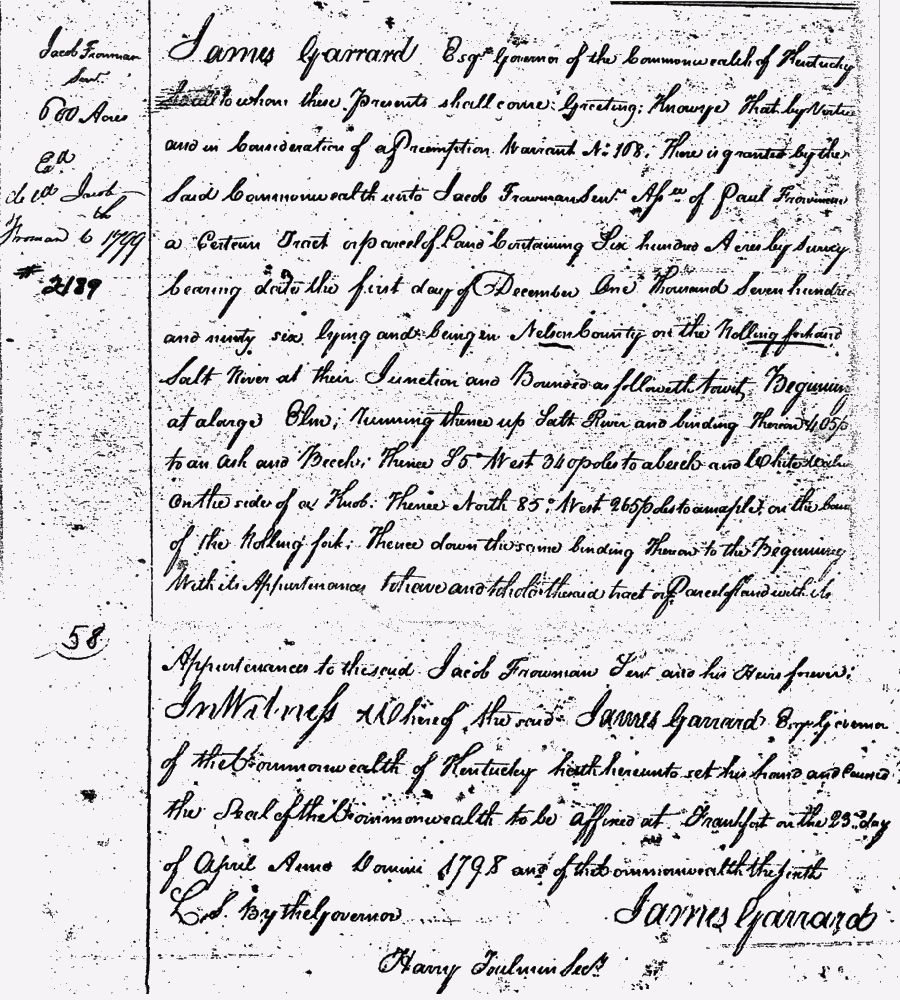 Jacob Froman
Senr.
600 Acres
Ed
dd Jacob
Froman 6th 1799
# 2189
James Garrard Esqr Governor of the Commonwealth of Kentucky
to all to whom these Presents shall come: Greeting; Knowye That by Vertue
and in Consideration of a Preemption Warrant No 108; There is granted by the
Said Commonwealth unto Jacob Frowman Senr. Assee of Paul Frowman
a Certain Tract or parcel of Land Containing Six hundred Acres by Survey
bearing date the first day of December One Thousand Seven hundred
and ninty six lying and being in Nelson County on the Rolling fork and
Salt River at their Junction and Bounded as followeth towit, Beginning
at a large Elm; Running thence up Salt River and binding Thereon 405 p
to an Ash and Beech; Thence S5° West 340 poles to a beech and White
On the side of a Knob: Thence North 85° West 265 poles to a maple, on the bank
of the Rolling fork; Thence down the same binding Thereon to the Beginning
With its Appurtenances to have and to hold the said tract or Parcel of land with its
58
Appurtenances to the said Jacob Frowman Senr and his Heirs forever;
In Witness Whereof the said James Garrard Esqr Governor
of the Commonwealth of Kentucky hath hereunto set his hand and Caused
the Seal of the Commonwealth to be affixed at Frankfort on the 23rd day
of April Anno Domini 1798 and of the Commonwealth the sixth
L. S. By the Governor James Garrard
Harry Toulmin Secy